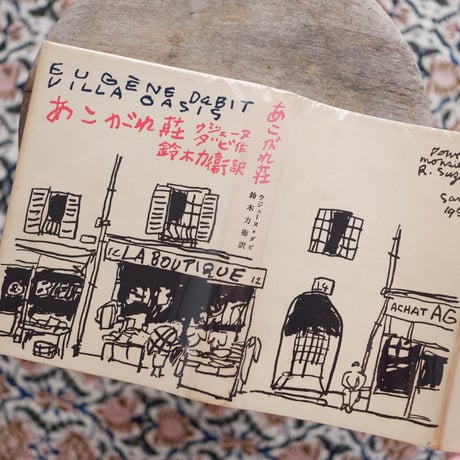 EUGÈNE DABIT
VILLA OASIS
あこがれ荘
ウジェーヌ
ダビ作
鈴木力衛訳
あこがれ荘
ウジェーヌ・ダビ
鈴木力衛訳
LA BOUTIQUE
12
14
ACHAT AG
monsie
R. Suz